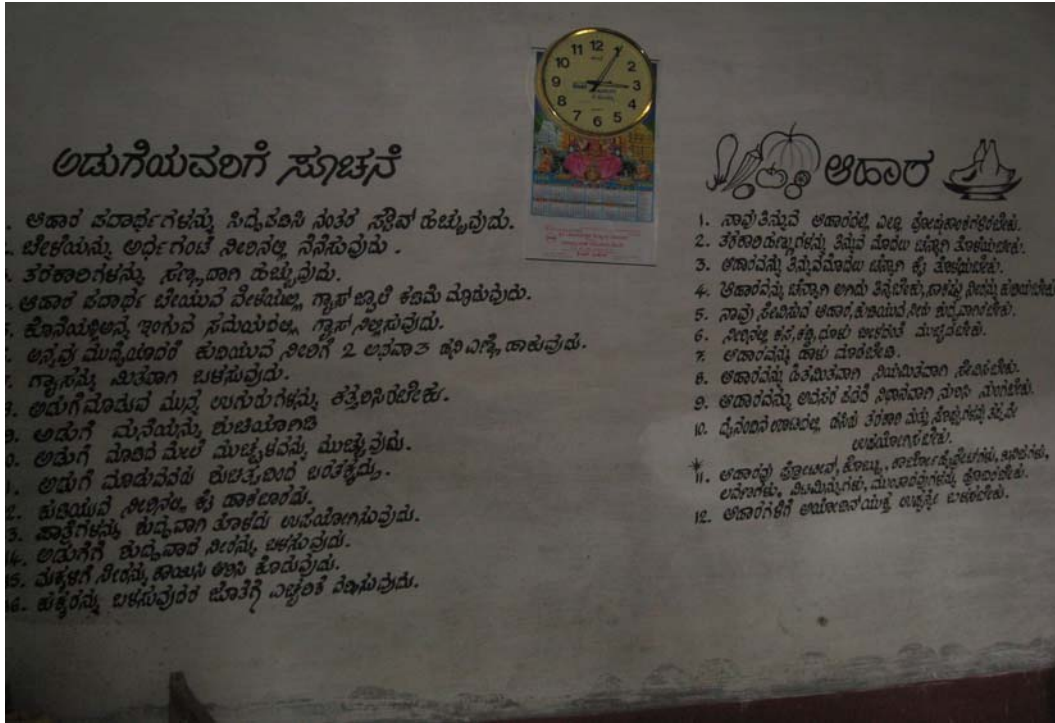 ಅಡುಗೆಯವರಿಗೆ ಸೂಚನೆ
ಆಹಾರ ಪದಾರ್ಥಗಳನ್ನು ಸಿದ್ಧಪಡಿಸಿ ನಂತರ ಸ್ಟೌವ್ ಹಚ್ಚುವುದು.
ಬೇಳೆಯನ್ನು ಅರ್ಧಗಂಟೆ ನೀರಿನಲ್ಲಿ ನೆನೆಸುವುದು.
ತರಕಾರಿಗಳನ್ನು ಸಣ್ಣದಾಗಿ ಹೆಚ್ಚುವುದು.
ಆಹಾರ ಪದಾರ್ಥ ಬೇಯುವ ವೇಳೆಯಲ್ಲಿ ಗ್ಯಾಸ್ ಜ್ವಾಲೆ ಕಡಿಮೆ ಮಾಡುವುದು.
ಕೊನೆಯಲ್ಲಿ ಅನ್ನ ಇಂಗುವ ಸಮಯದಲ್ಲಿ ಗ್ಯಾಸ್ ನಿಲ್ಲಿಸುವುದು.
ಅನ್ನವು ಮುದ್ದೆಯಾದರೆ ಕುದಿಯುವ ನೀರಿಗೆ 2 ಅಥವಾ 3 ಹನಿ ಎಣ್ಣೆ ಹಾಕುವುದು.
ಗ್ಯಾಸನ್ನು ಮಿತವಾಗಿ ಬಳಸುವುದು.
ಅಡುಗೆಮಾಡುವ ಮುನ್ನ ಉಗುರುಗಳನ್ನು ಕತ್ತರಿಸಿರಬೇಕು.
ಅಡುಗೆ ಮನೆಯನ್ನು ಶುಚಿಯಾಗಿಡಿ
ಅಡುಗೆ ಮಾಡಿದ ಮೇಲೆ ಮುಚ್ಚಳವನ್ನು ಮುಚ್ಚುವುದು.
ಅಡುಗೆ ಮಾಡುವವರು ಶುಚಿತ್ವದಿಂದ
12. ಕುದಿಯುವ ನೀರಿನಲ್ಲಿ ಕೈ ಹಾಕಬಾರದು.
13. ಪಾತ್ರೆಗಳನ್ನು ಶುದ್ಧವಾಗಿ ತೊಳೆದು ಉಪಯೋಗಿಸುವುದು.
14. ಅಡುಗೆಗೆ ಶುದ್ಧವಾದ ನೀರನ್ನು ಬಳಸುವುದು.
15. ಮಕ್ಕಳಿಗೆ ನೀರನ್ನು ಕಾಯಿಸಿ ಆರಿಸಿ ಕೊಡುವುದು.
16. ಕುಕ್ಕರನ್ನು ಬಳಸುವುದರ ಜೊತೆಗೆ ಎಚ್ಚರಿಕೆ ವಹಿಸುವುದು.
ಆಹಾರ
1. ನಾವು ತಿನ್ನುವ ಆಹಾರದಲ್ಲಿ ಎಲ್ಲಾ ಪೋಷಕಾಂಶಗಳಿರಬೇಕು.
2. ತರಕಾರಿ ಹಣ್ಣುಗಳನ್ನು ತಿನ್ನುವ ಮೊದಲು ಚೆನ್ನಾಗಿ ತೊಳೆಯಬೇಕು.
3. ಆಹಾರವನ್ನು ತಿನ್ನುವ ಮೊದಲು ಚೆನ್ನಾಗಿ ಕೈ ತೊಳೆಯಬೇಕು.
4. ಆಹಾರವನ್ನು ಚೆನ್ನಾಗಿ ಅಗಿದು ತಿನ್ನಬೇಕು, ಸಾಕಷ್ಟು ನೀರನ್ನು ಕುಡಿಯಬೇಕು
5. ನಾವು ಸೇವಿಸುವ ಆಹಾರ, ಕುಡಿಯುವ ನೀರು ಶುದ್ಧವಾಗಿರಬೇಕು.
6. ನೀರಿನಲ್ಲಿ ಕಸ, ಕಡ್ಡಿ, ಧೂಳು ಬೀಳದಂತೆ ಮುಚ್ಚಿಡಬೇಕು.
7. ಆಹಾರವನ್ನು ಹಾಳು ಮಾಡಬೇಡಿ.
8. ಆಹಾರವನ್ನು ಹಿತಮಿತವಾಗಿ ನಿಯಮಿತವಾಗಿ ಸೇವಿಸಬೇಕು.
9. ಆಹಾರವನ್ನು ಅವಸರ ಪಡದೆ ನಿಧಾನವಾಗಿ ನುರಿಸಿ ನುಂಗಬೇಕು.
10. ದೈನಂದಿನ ಊಟದಲ್ಲಿ ಹಸಿರು ತರಕಾರಿ ಮತ್ತು ಸೊಪ್ಪುಗಳನ್ನು ತಪ್ಪದೇ
ಉಪಯೋಗಿಸಬೇಕು.
11. ಆಹಾರವು ಪ್ರೋಟೀನ್, ಕೊಬ್ಬು, ಕಾರ್ಬೋಹೈಡ್ರೇಟ್‌ಗಳು, ಖನಿಜಗಳು,
ಲವಣಗಳು, ವಿಟಮಿನ್ನುಗಳು, ಹೊಂದಿರಬೇಕು.
12. ಆಹಾರಗಳಿಗೆ ಅಯೋಡಿನ್‌ಯುಕ್ತ ಉಪ್ಪನ್ನೇ ಬಳಸಬೇಕು.
12
1
2
3
4
5
6
7
8
9
10
11